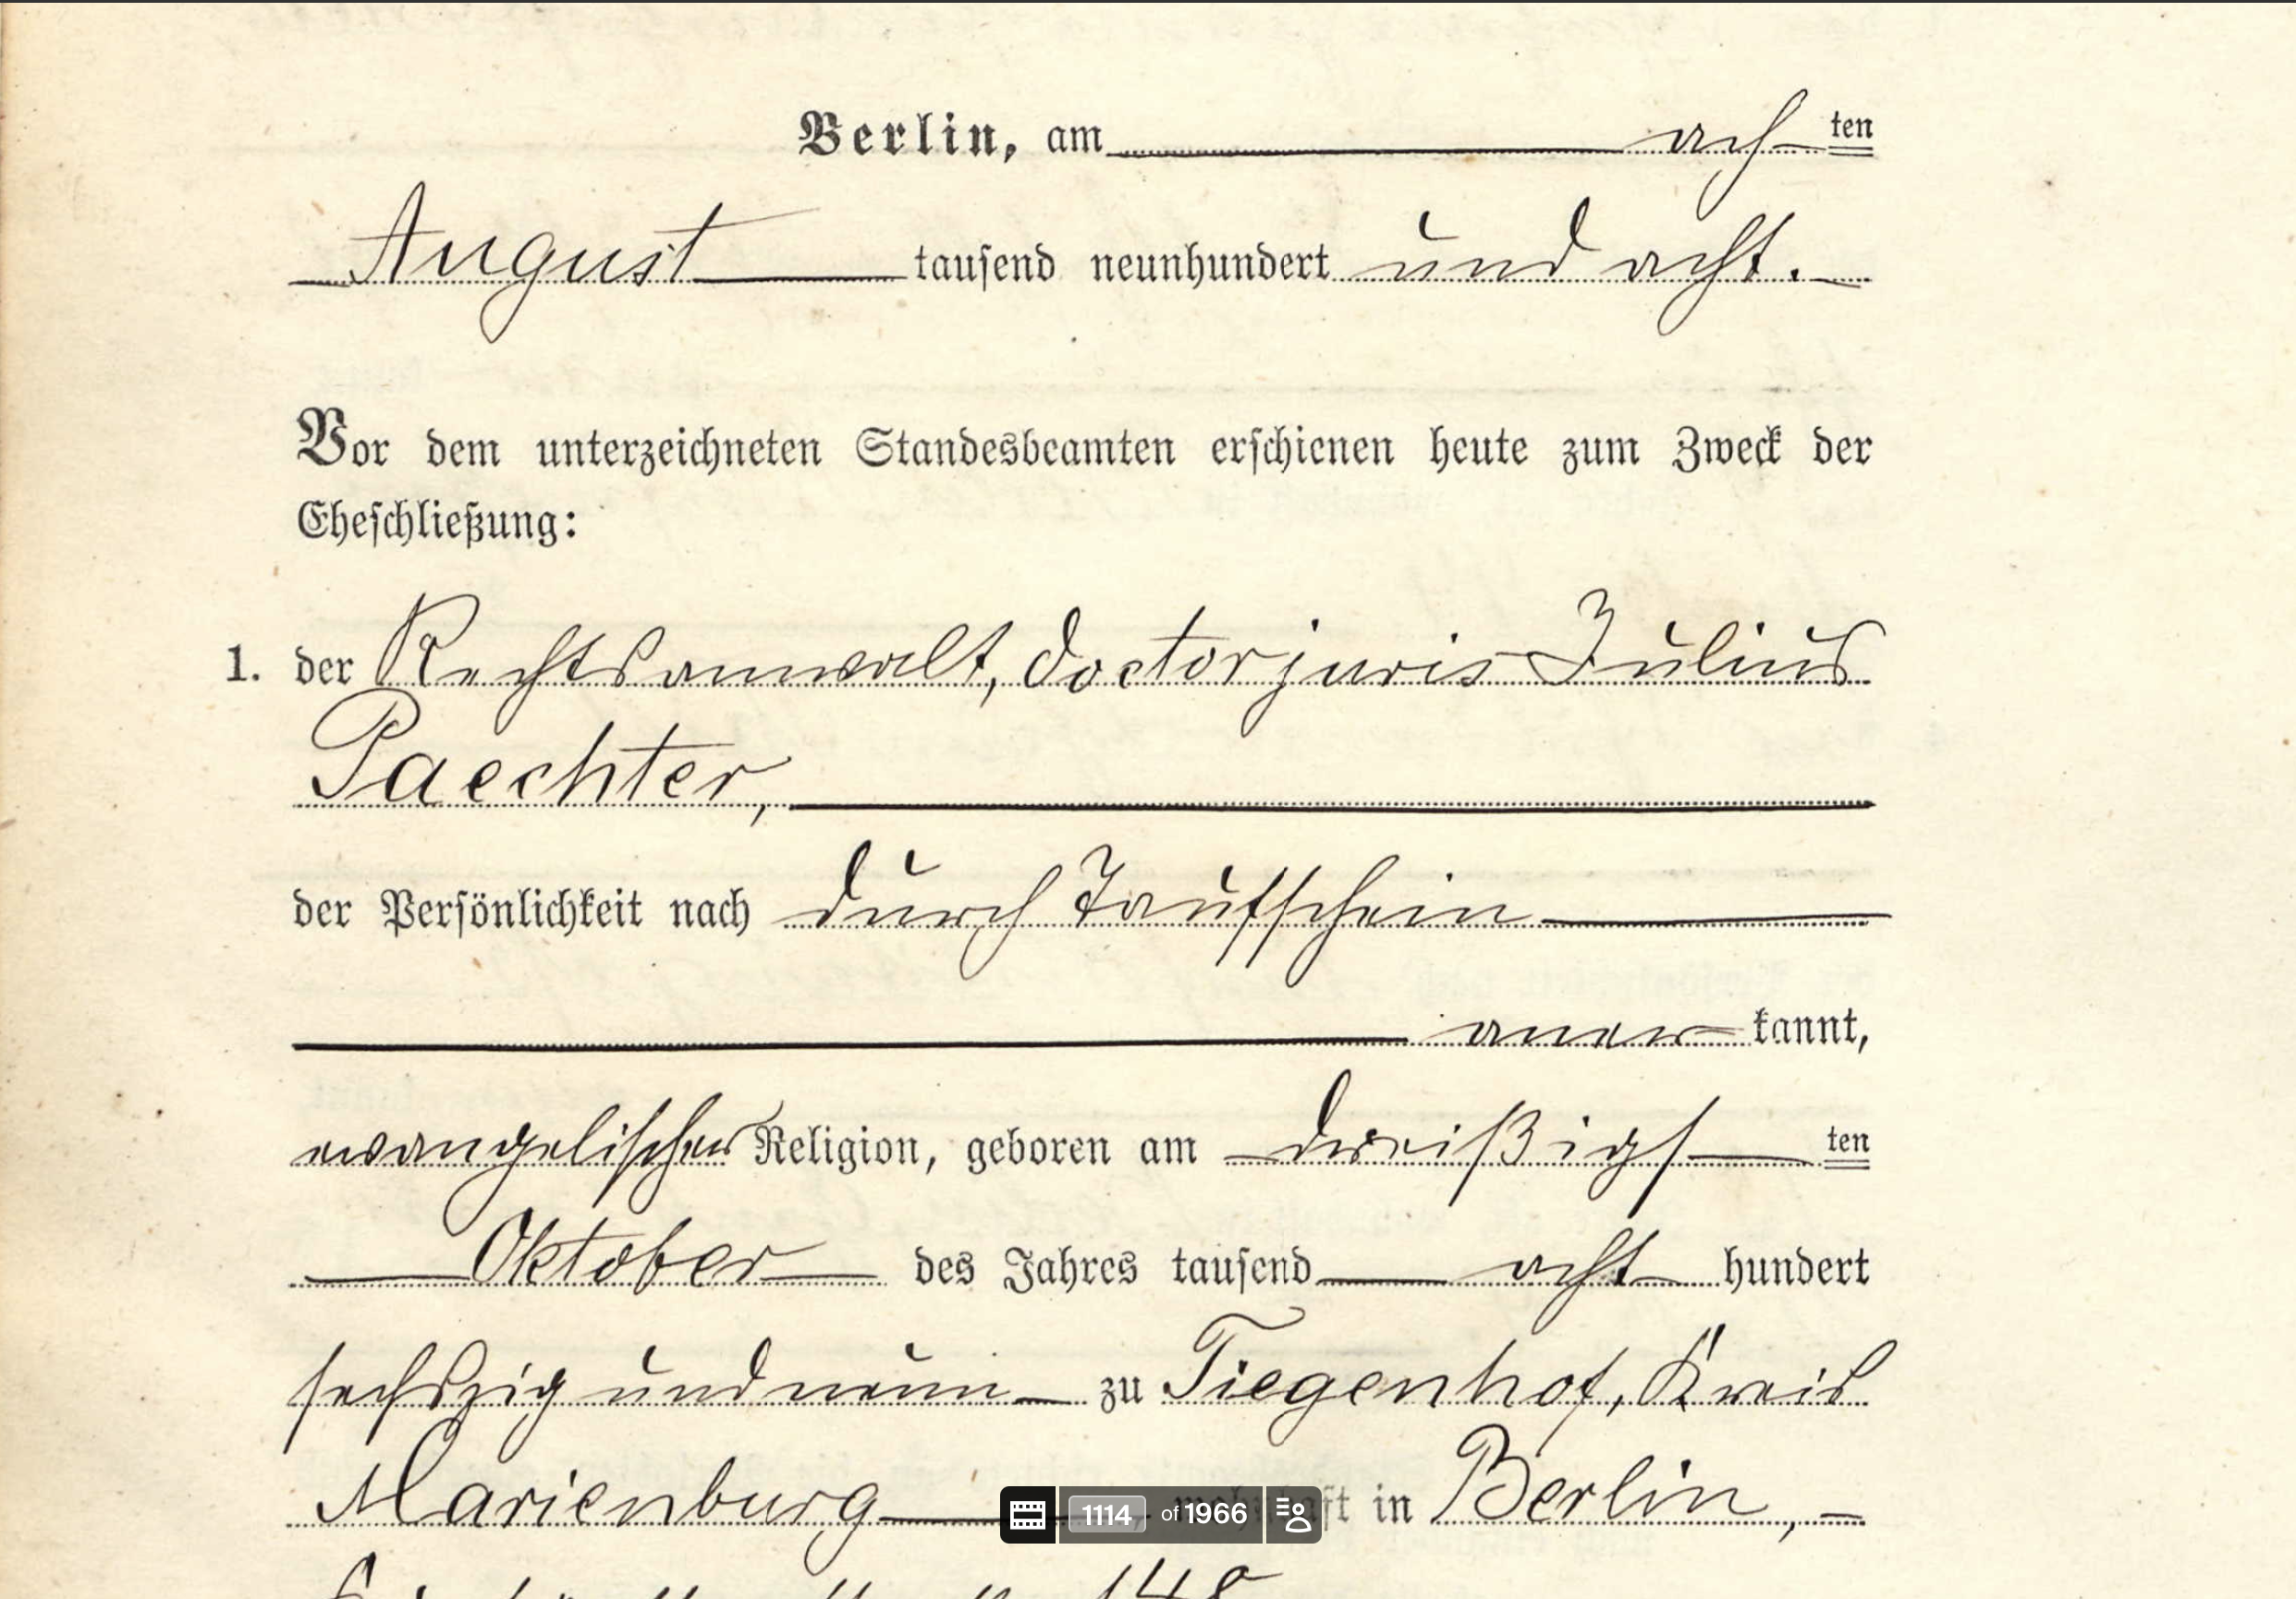 Berlin, am ach ten
August tausend neunhundert und acht.
Vor dem unterzeichneten Standesbeamten erschienen heute zum Zweck der
Eheschließung:
1. der Rechtsanwalt, Doctor juris Julius
Paechter,
der Persönlichkeit nach durch Taufschein
aner kannt,
evangelischer Religion, geboren am dreißigs ten
Oktober des Jahres tausend acht hundert
sechszig und neun zu Tiegenhof, Kreis
Marienburg wohnhaft in Berlin,
1114 of 1966
148